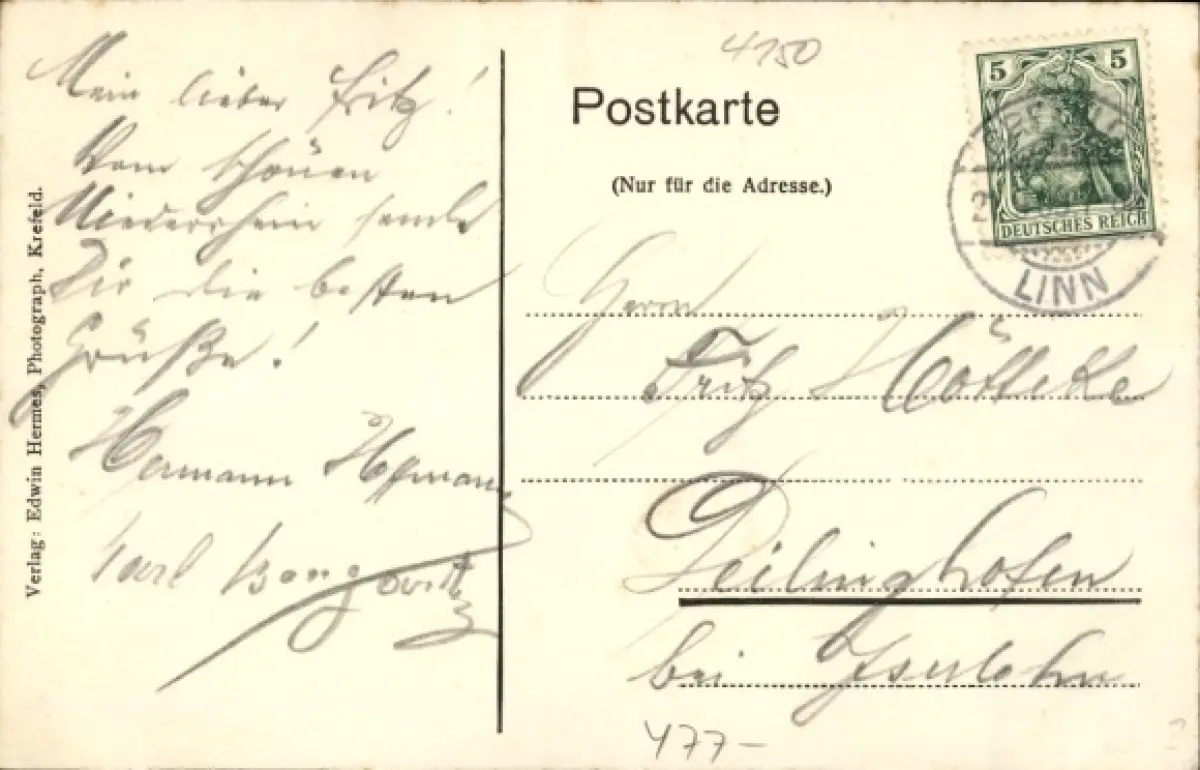 Mein lieber Fritz!
Vom schönen
Niederrhein sende
Dir die besten
Grüße!
Hermann Hoffmann
Karl
Verlag: Edwin Hermes, Photograph, Krefeld.
4150
Postkarte
(Nur für die Adresse.)
5 5
DEUTSCHES REICH
LINN
Herrn
Fritz Höttcke
Deilinghofen
bei Iserlohn
477-